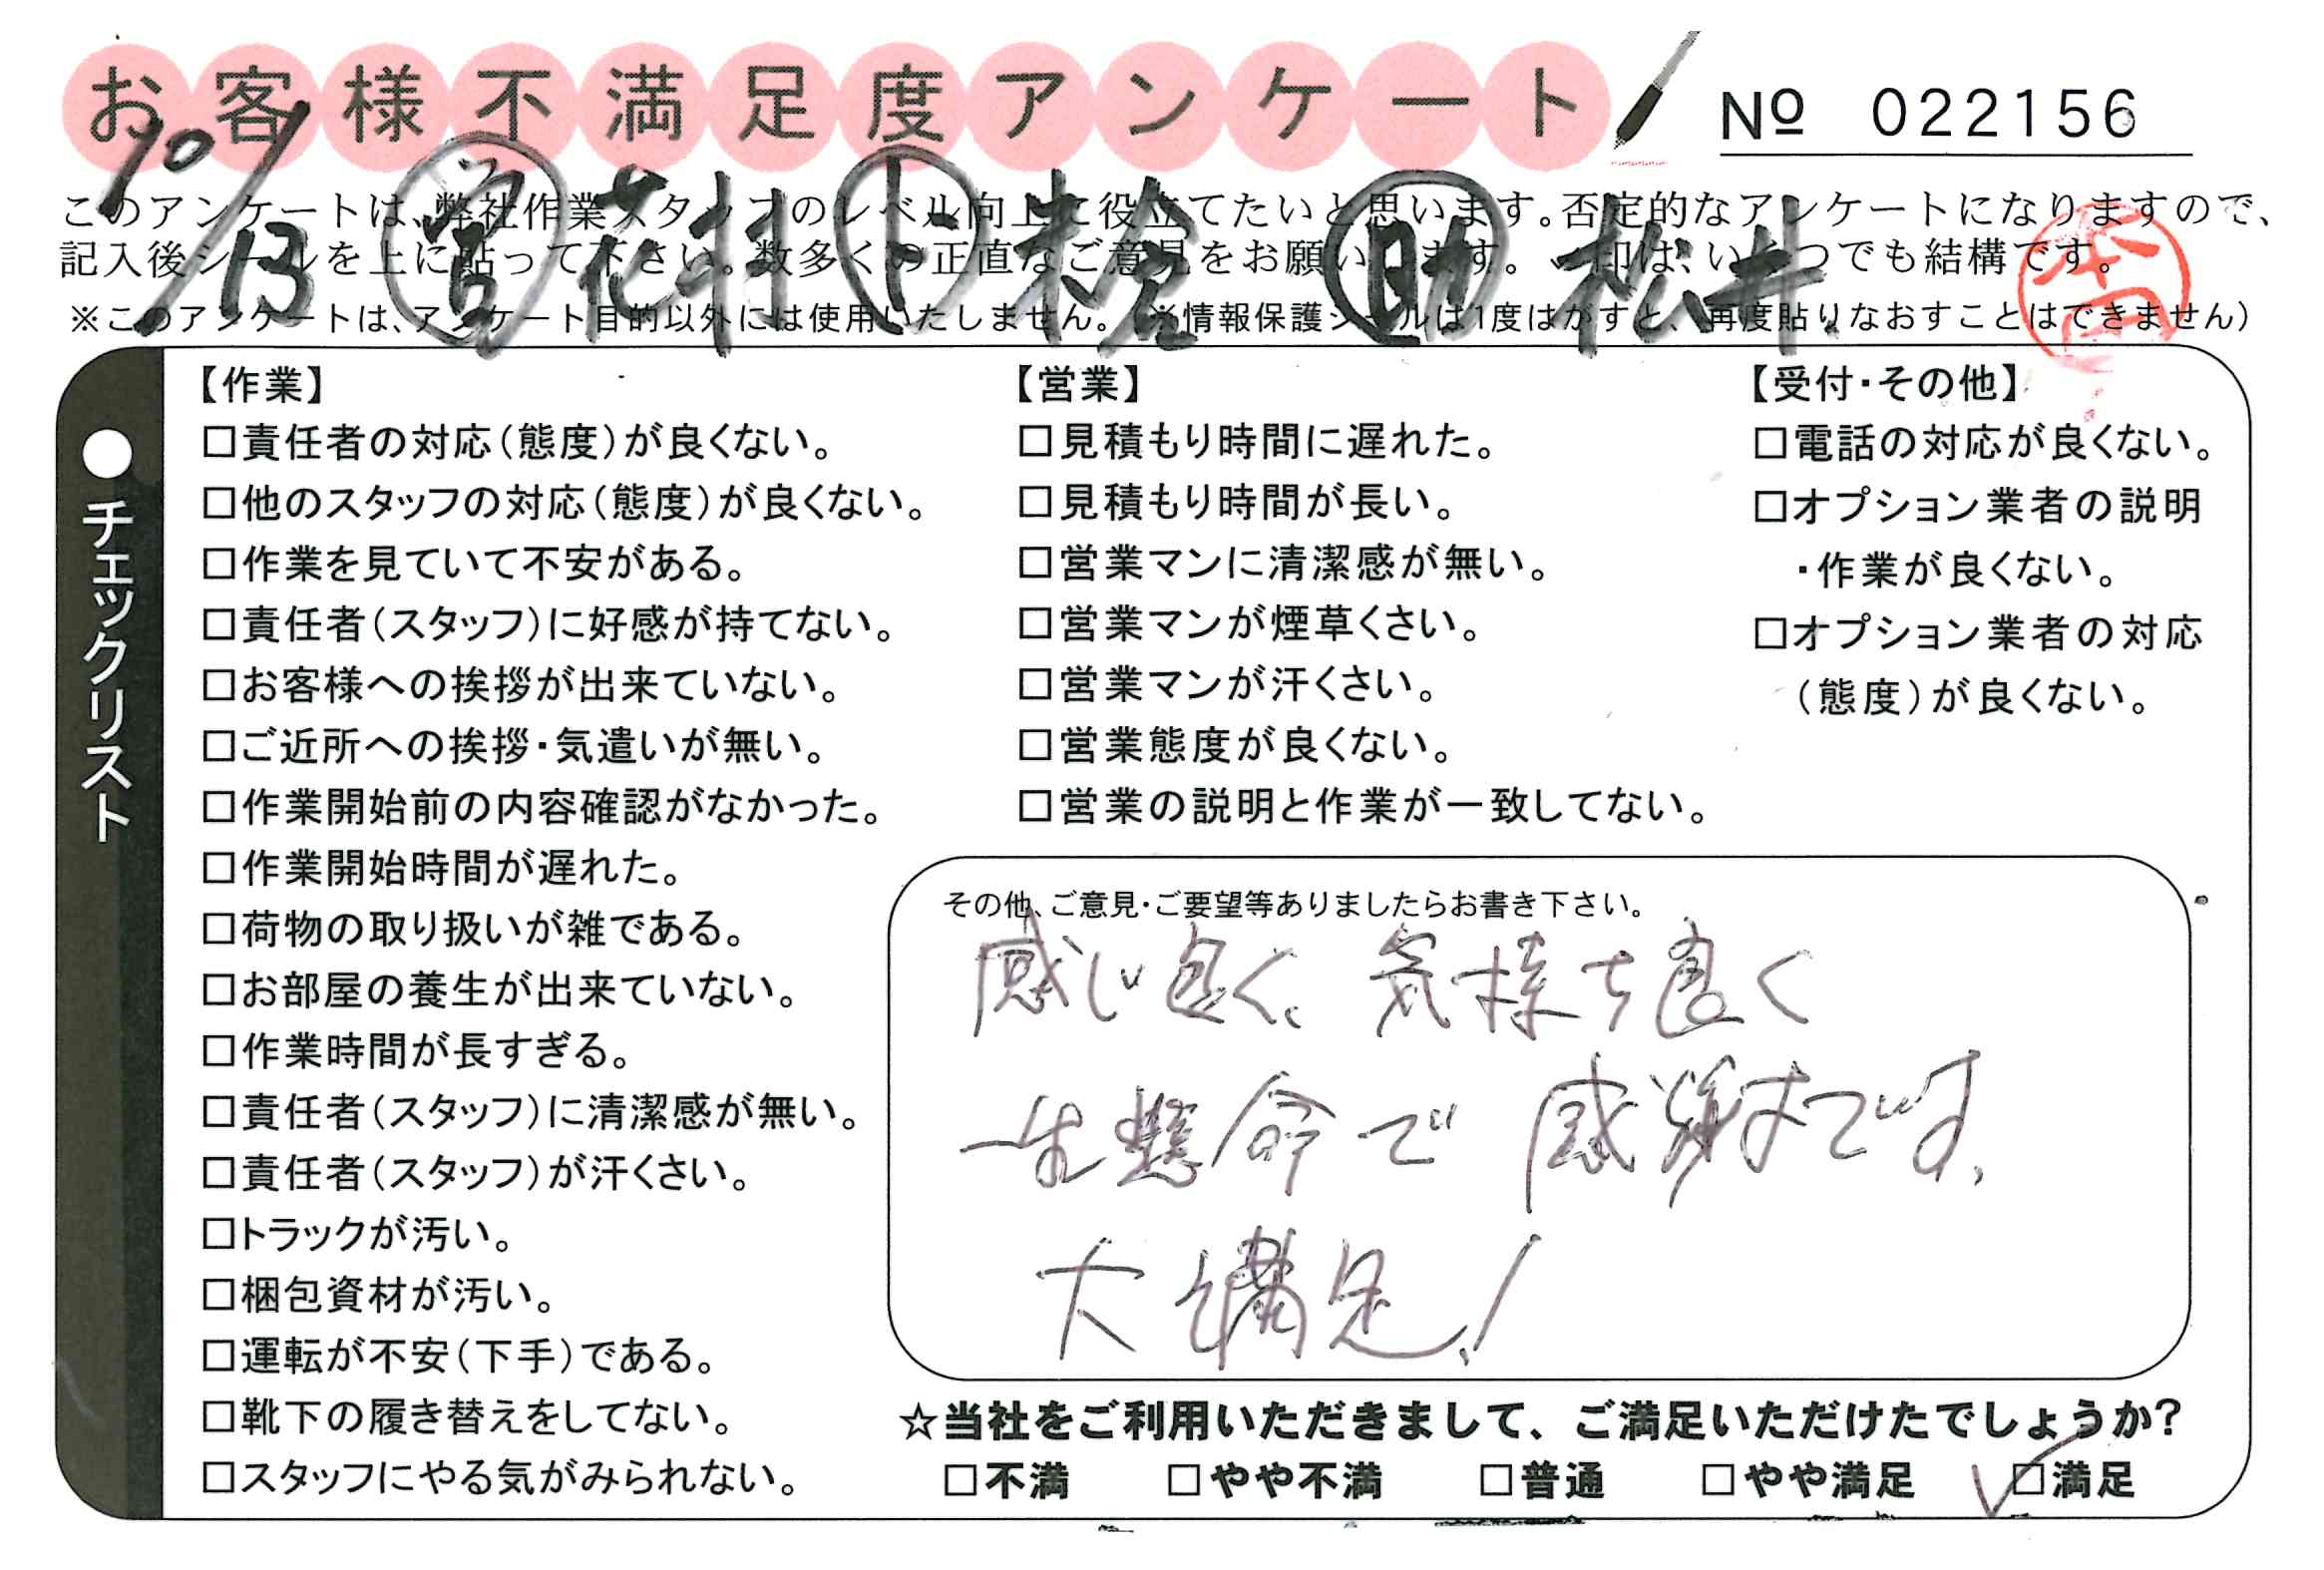 お客様不満足度アンケート
№ 022156
10/13 営 花村 ト 助 松井
このアンケートは、弊社作業スタッフのレベル向上に役立てたいと思います。否定的なアンケートになりますので、
記入後シールを上に貼って下さい。数多くの正直なご意見をお願いします。✓印は、いくつでも結構です。
※このアンケートは、アンケート目的以外には使用いたしません。(※情報保護シールは1度はがすと、再度貼りなおすことはできません)
●チェックリスト
【作業】
□責任者の対応(態度)が良くない。
□他のスタッフの対応(態度)が良くない。
□作業を見ていて不安がある。
□責任者(スタッフ)に好感が持てない。
□お客様への挨拶が出来ていない。
□ご近所への挨拶・気遣いが無い。
□作業開始前の内容確認がなかった。
□作業開始時間が遅れた。
□荷物の取り扱いが雑である。
□お部屋の養生が出来ていない。
□作業時間が長すぎる。
□責任者(スタッフ)に清潔感が無い。
□責任者(スタッフ)が汗くさい。
□トラックが汚い。
□梱包資材が汚い。
□運転が不安(下手)である。
□靴下の履き替えをしてない。
□スタッフにやる気がみられない。
【営業】
□見積もり時間に遅れた。
□見積もり時間が長い。
□営業マンに清潔感が無い。
□営業マンが煙草くさい。
□営業マンが汗くさい。
□営業態度が良くない。
□営業の説明と作業が一致してない。
【受付・その他】
□電話の対応が良くない。
□オプション業者の説明
・作業が良くない。
□オプション業者の対応
(態度)が良くない。
その他、ご意見・ご要望等ありましたらお書き下さい。
感じ良く、気持ち良く
一生懸命で感謝です。
大満足!
☆当社をご利用いただきまして、ご満足いただけたでしょうか?
□不満 □やや不満 □普通 □やや満足 ☑満足